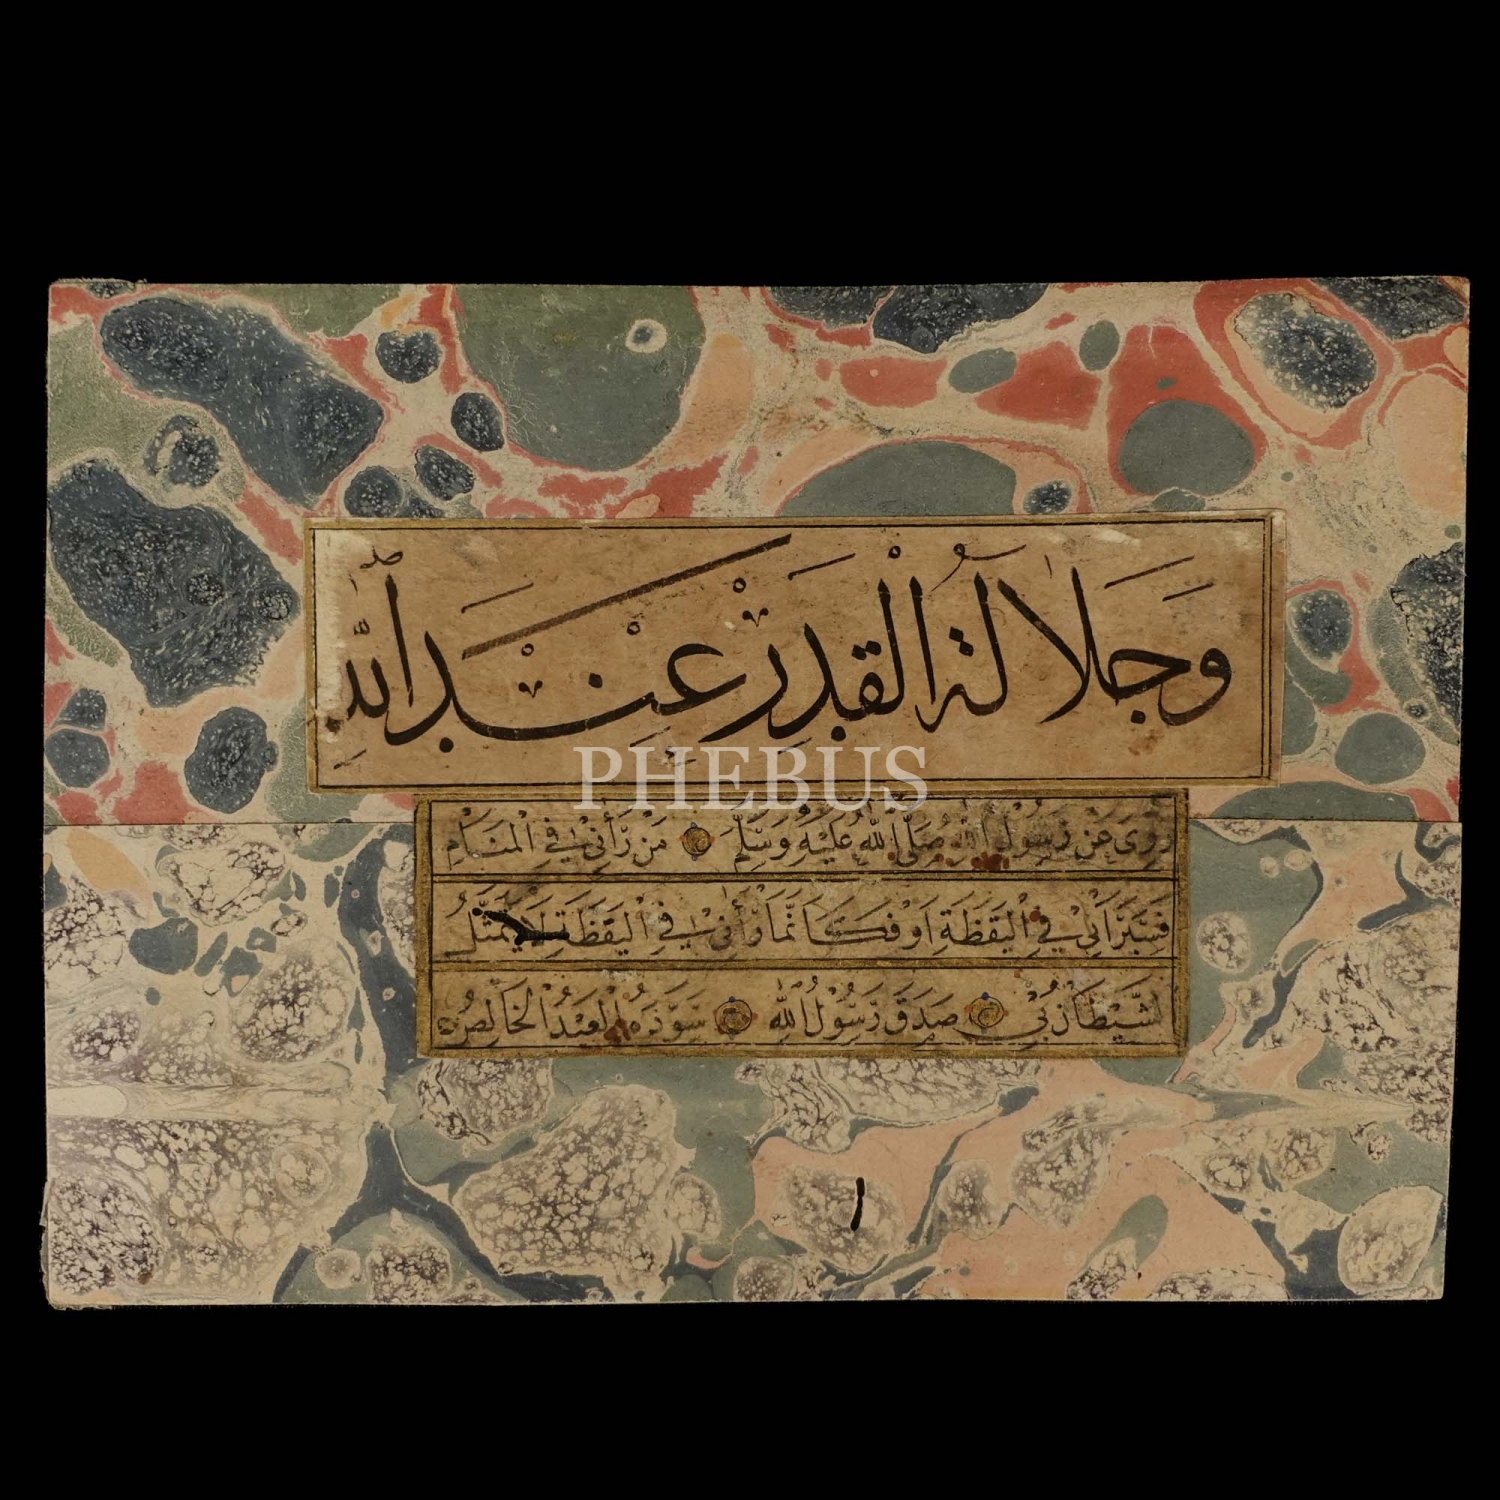 وَجَلَالَةُ الْقَدَرِ عِنْدَ اللّٰهِ
PHEBUS
رُوِىَ عَنْ رَسُولِ اللّٰهِ صَلَّى اللّٰهُ عَلَيْهِ وَسَلَّمَ مَنْ رَأٰنِى فِى الْمَنَامِ
فَسَيَرَانِى فِى الْيَقَظَةِ اَوْ فَكَاَنَّمَا رَأٰنِى فِى الْيَقَظَةِ لَا يَتَمَثَّلُ
الشَّيْطَانُ بِى صَدَقَ رَسُولُ اللّٰهِ سَوَّدَهُ الْعَبْدُ الْخَالِصُ
١